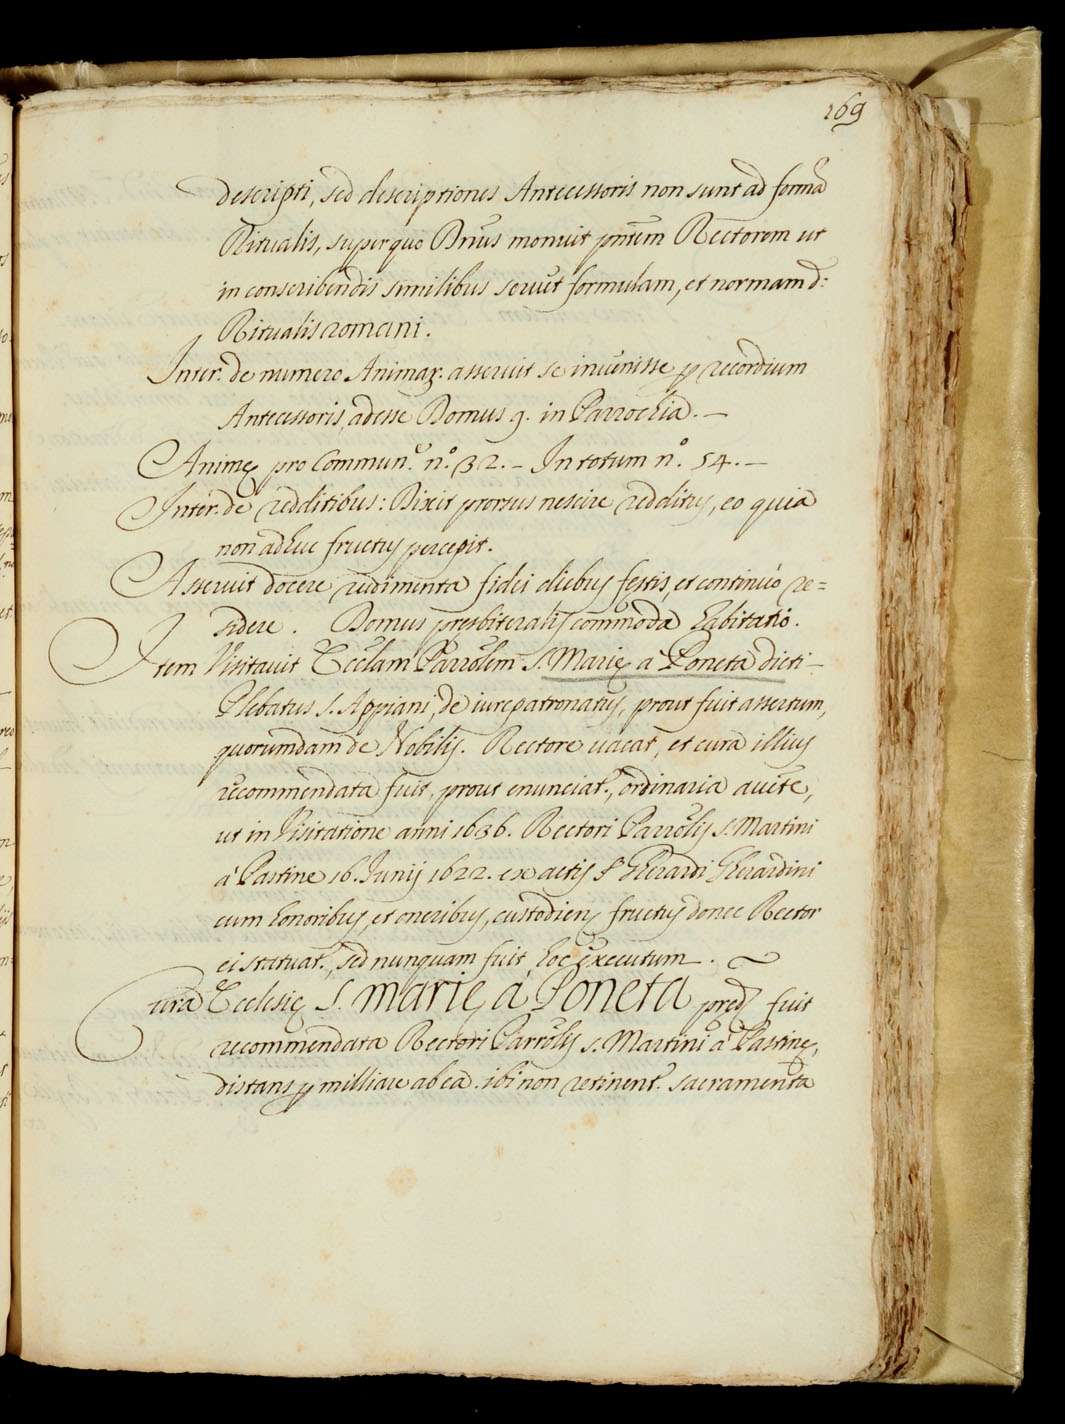 169
descripti, sed descriptiones Antecessoris non sunt ad formā
Ritualis, super quo Dn̄us monuit pn̄tem Rectorem ut
in conscribendis similibus servet formulam, et normam d:
Ritualis romani.
Inter. de numero Animar. asseruit se invenisse p recordium
Antecessoris, adesse Domus 9. in Parrochia. —
Animę pro Commun.e n.o 32. – In totum n.o 54. —
Inter. de redditibus: Dixit prorsus nescire redditus, eo quia
non adhuc fructus percepit.
Asseruit docere rudimenta fidei diebus festis, et continuò re=
sidere. Domus presbiteralis commoda habitatio.
Item Visitavit Eccl̄am Parrōlem S. Marię à Poneta dicti
Plebatus S. Appiani, de iurepatronatus, prout fuit assertum,
quorumdam de Nobilis. Rectore vacat, et cura illius
recommendata fuit, prout enunciat., ordinaria auc̄te,
ut in Visitatione anni 1636. Rectori Parrōlis S. Martini
à Pastine 16. Junij 1622. ex actis S. Gherardi Gherardini
cum honoribus, et oneribus, custodiens fructus donec Rector
ei statuat., sed nunquam fuit hoc executum.
Cura Ecclesię S. Marię à Poneta pred.ę fuit
recommendata Rectori Parrōlis S. Martini à Pastine,
distans p milliare ab ea. ibi non retinent. sacramenta